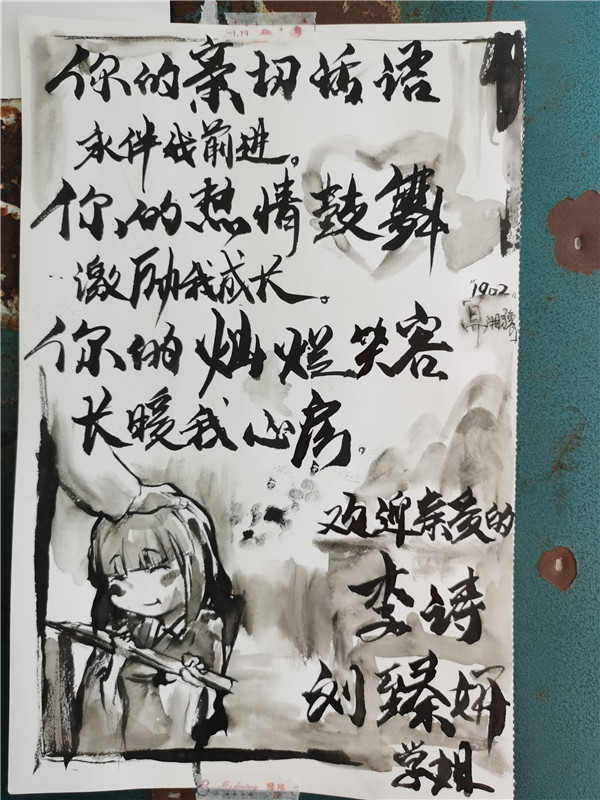 你的亲切话语
永伴我前进。
你的热情鼓舞
激励我成长。
"1902"
你的灿烂笑容
长暖我心房。
欢迎亲爱的
李诗
刘臻妍
学姐